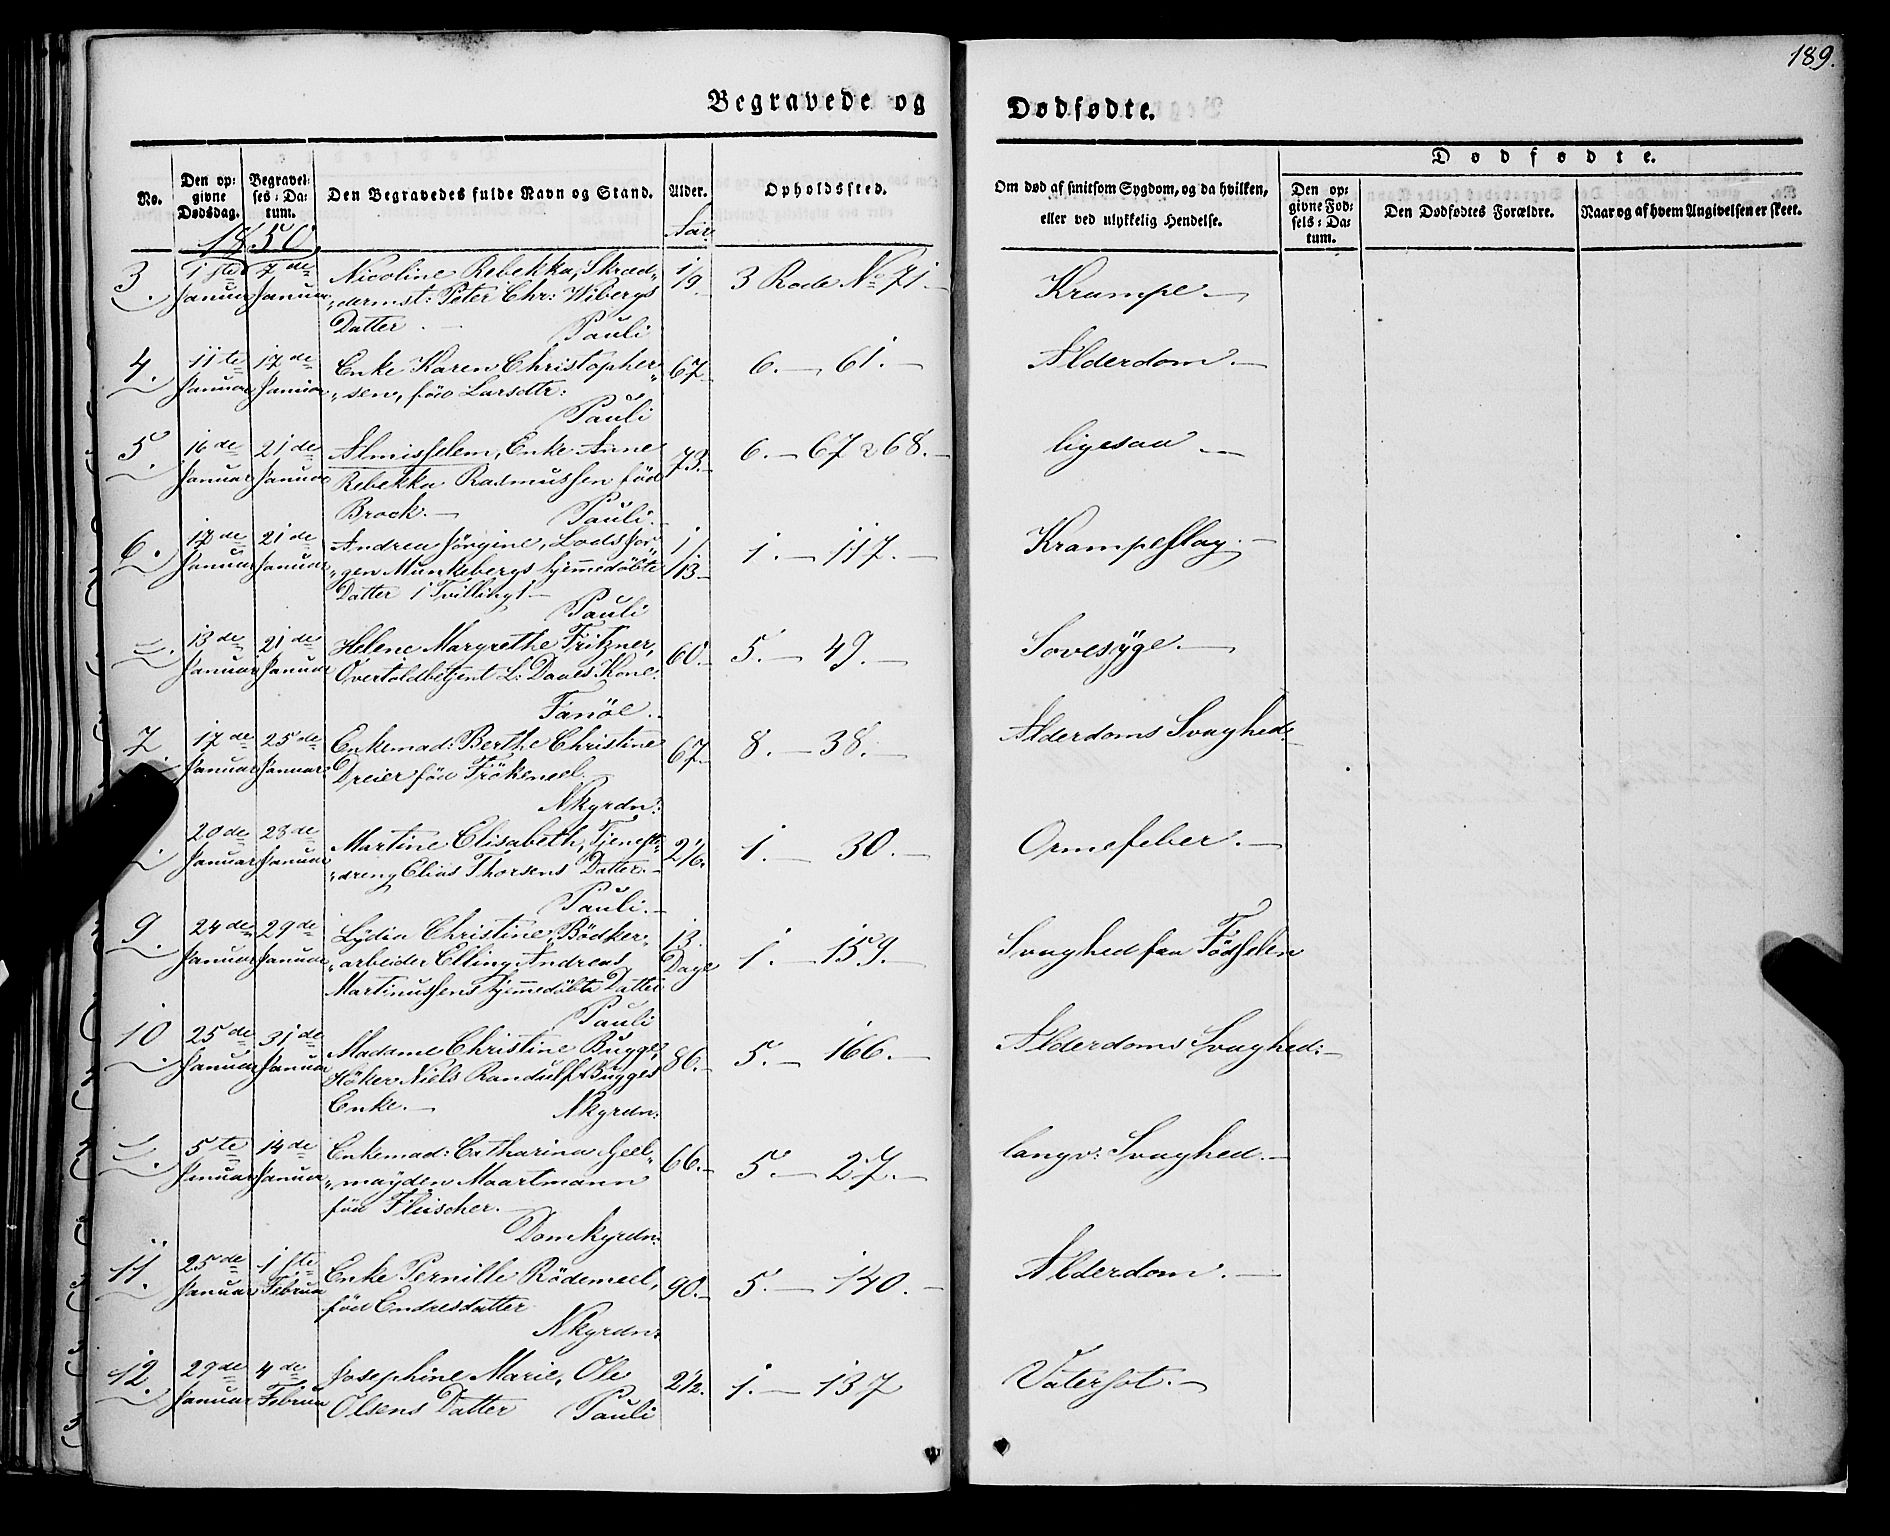 189.
Begravede og
Dødfødte.
No.
Den opgivne Dødsdag.
Begravelses-Datum.
Den Begravedes fulde Navn og Stand.
Alder.
Opholdssted.
Om død af smitsom Sygdom, og da hvilken,
eller ved ulykkelig Hendelse.
Dødfødte.
Den opgivne Fødsels-Datum.
Den Dødfødtes Forældre.
Naar og af hvem Angivelsen er skeet.
1850.
Aar
3. 1ste Januar 7de Januar Nicoline Rebekka, Skræd- 1/9 3 Rode No 71.— Krampe.—
"dermst: Peter Chr: Wibergs
Datter.— Pauli
4. 11te Januar 17de Januar Enke Karen Christopher- 67.— 6.— 61.— Alderdom.—
"sen, fød Larsdtr:
Pauli
5. 16de Januar 21de Januar Almisselem, Enke Anne 73.— 6.— 67 & 68.— ligesaa.—
Rebekka Rasmussen fød
Brock.— Pauli.
6. 17de Januar 21de Januar Andrea Jörgine, Lods Jör- 1/13.— 1.— 117.— Krampeslag.—
"gen Munkebergs hjemmedöbte
Datter 1 Tvilling.—
Pauli
13de Januar 21de Januar Helene Margrethe Fritzner, 60.— 5.— 49.—
Overtoldbetjent L: Daaes Kone.
Fanöe.
7. 17de Januar 25de Januar: Enkemad: Berthe Christine 67.— 8.— 38.— Alderdoms Svaghed.
Dreier fød
Nkgrdn:
20de Januar 28de Januar Martine Elisabeth, Tjeneste- 2 1/6. 1.— 30.— Ormefeber.—
"dreng Elias Thorsens Datter.—
Pauli.—
9. 24de Januar 29de Januar Lydia Christine, Bödker- 13. Dage 1.— 159.— Svaghed fra Födselen
"arbeider Elling Andreas
Martinussens hjemmedöbte Datter
Pauli
10. 25de Januar 31de Januar Madame Christine Bugge, 86.— 5.— 166.— Alderdoms Svaghed:—
Höker Niels Randulf Bugges
Enke.— Nkgrdn:
5te Januar 14de Januar Enkemad: Catharina Geel- 66.— 5.— 27.— langv: Svaghed.—
"mÿden Maartmann
fød Fleischer.—
Domkgrdn:
11. 25de Januar 1ste Februar Enke Pernille Rödemeel, 90.— 5.— 140.— Alderdom.—
fød Endresdatter
Nkgrdn:
12. 29de Januar 4de Februar Josephine Marie, Ole 2 1/2. 1.— 137 Vatersot.—
Olsens Datter Pauli